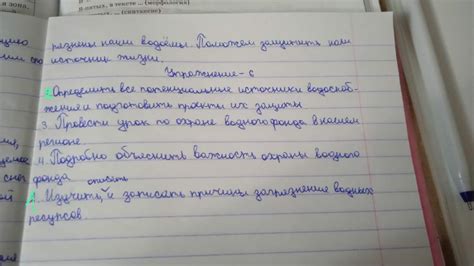 в-пятых, в тексте ... (морфология)
(синтаксис)
рязнены наши водоёмы. Поможем защитить нам
источник жизни.
Упражнение-6
2. Определить все потенциальные источники водоснаб-
жения и подготовить проекты их защиты
3. Провести урок по охране водного фонда в нашем
регионе
4. Подробно объяснить важность охраны водного
фонда
описать
1. Изучить, и записать причины загрязнение водных
ресурсов.